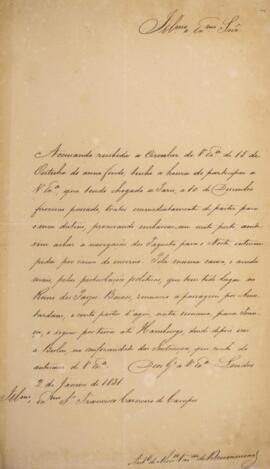 Illmo e Exmo Snr
Accusando recebida a Circular de V. Exa de 15 de
Outubro do anno findo, tenho a honra de participar a
V. Exa que tendo chegado a Paris, a 10 de Dezembro
proximo passado, tratei immediatamente de partir para
o meu destino, procurando embarcar-me neste porto, aonde
vim achar a navegação dos Paquetes para o Norte, interrom-
pida por causa do inverno. Pela mesma causa, e ainda
mais, pela perturbação politica, que tem tido lugar no
Reino dos Paizes Baixos, renunciei a passagem por Ams-
terdam, e conto partir d'aqui, nesta semana, para
e seguir por terra até Hamburgo, donde depois irei
a Berlin, na conformidade das Instrucções, que recebi do
antecessor de V. Exa Deos Ge a V. Exa Londres
2 de Janeiro de 1831.
Illmo Exmo Sr Francisco Carneiro de Campos
Anto de Menes Vasclos de Drummond